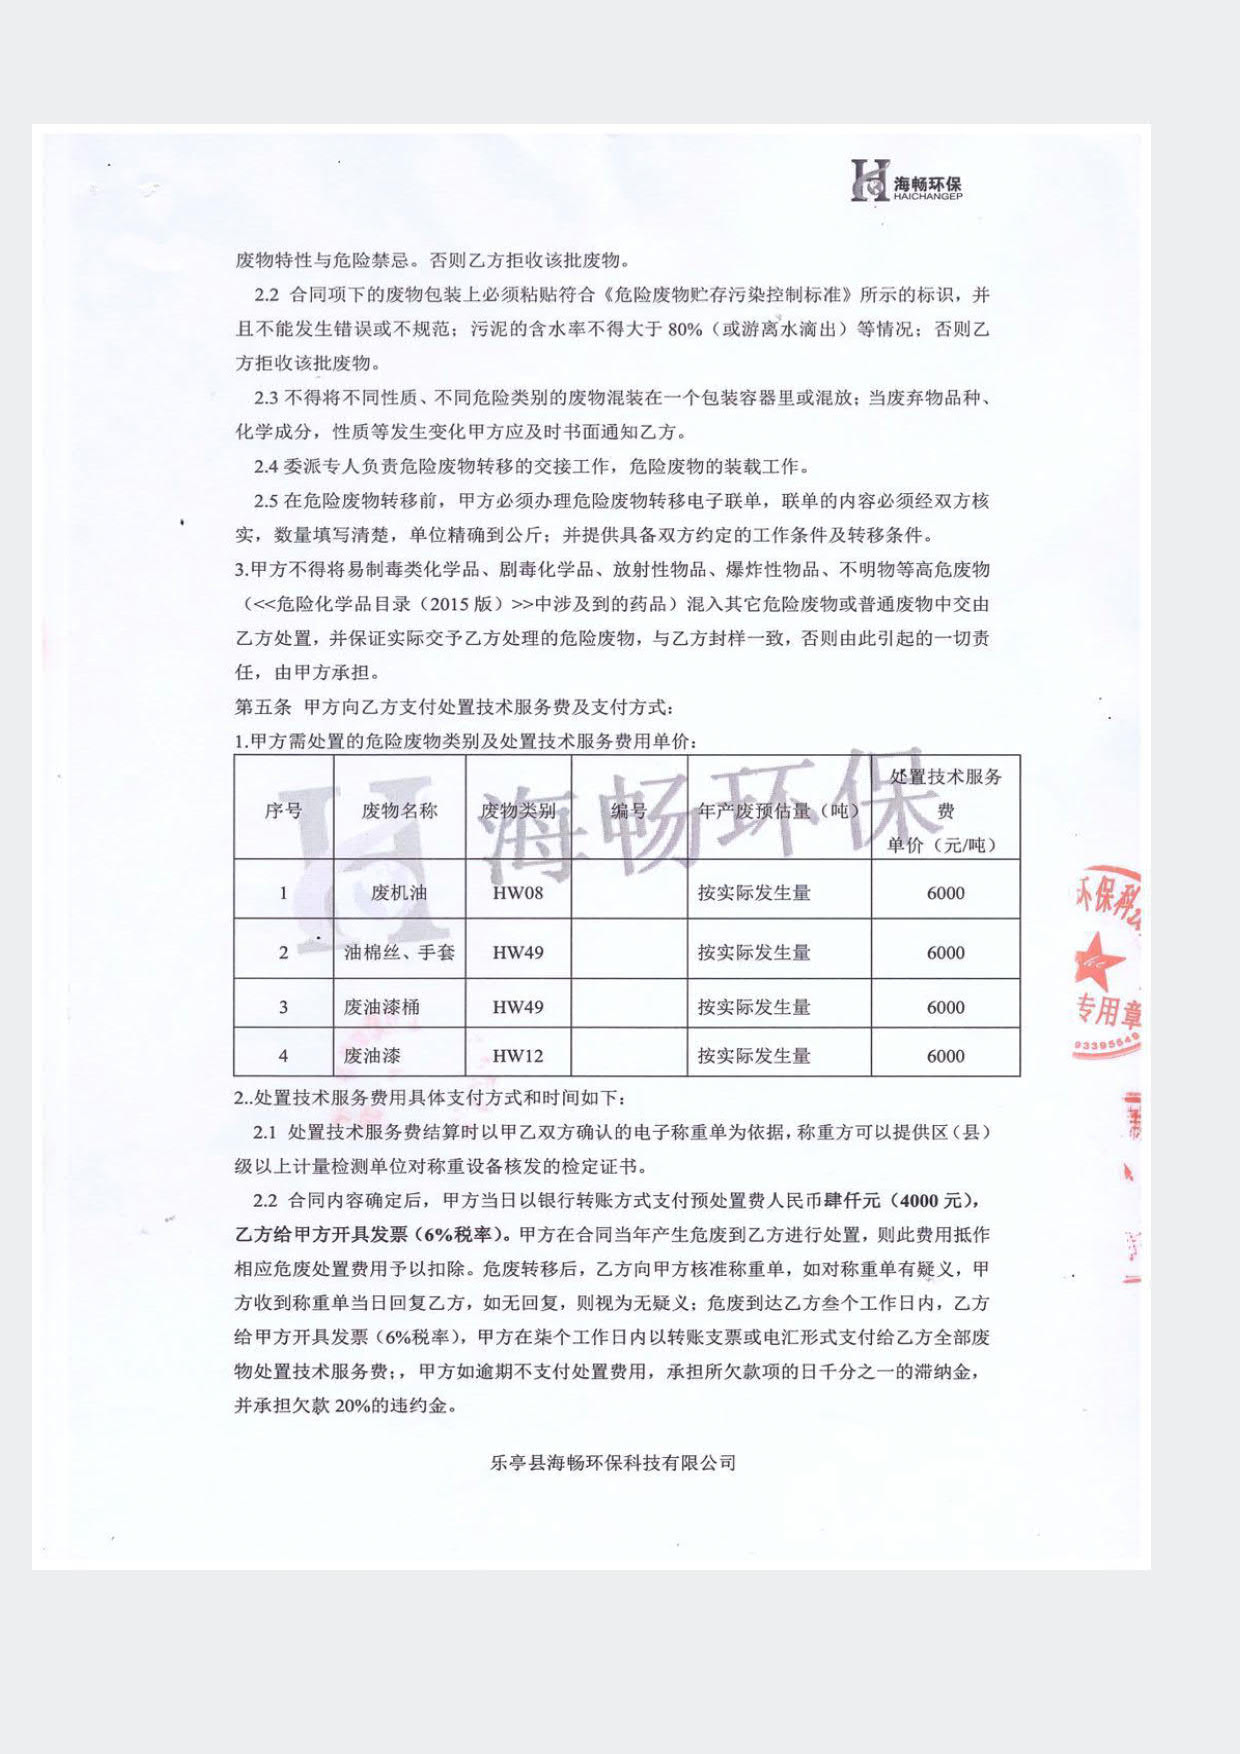 海畅环保
HAICHANGEP
废物特性与危险禁忌。否则乙方拒收该批废物。
2.2 合同项下的废物包装上必须粘贴符合《危险废物贮存污染控制标准》所示的标识，并
且不能发生错误或不规范；污泥的含水率不得大于 80%（或游离水滴出）等情况；否则乙
方拒收该批废物。
2.3 不得将不同性质、不同危险类别的废物混装在一个包装容器里或混放；当废弃物品种、
化学成分，性质等发生变化甲方应及时书面通知乙方。
2.4 委派专人负责危险废物转移的交接工作，危险废物的装载工作。
2.5 在危险废物转移前，甲方必须办理危险废物转移电子联单，联单的内容必须经双方核
实，数量填写清楚，单位精确到公斤；并提供具备双方约定的工作条件及转移条件。
3.甲方不得将易制毒类化学品、剧毒化学品、放射性物品、爆炸性物品、不明物等高危废物
（<<危险化学品目录（2015 版）>>中涉及到的药品）混入其它危险废物或普通废物中交由
乙方处置，并保证实际交予乙方处理的危险废物，与乙方封样一致，否则由此引起的一切责
任，由甲方承担。
第五条 甲方向乙方支付处置技术服务费及支付方式：
1.甲方需处置的危险废物类别及处置技术服务费用单价：
海畅环保
序号 废物名称 废物类别 编号 年产废预估量（吨） 处置技术服务
费
单价（元/吨）
1 废机油 HW08 按实际发生量 6000
2 油棉丝、手套 HW49 按实际发生量 6000
3 废油漆桶 HW49 按实际发生量 6000
4 废油漆 HW12 按实际发生量 6000
环保科
专用章
93395549
2..处置技术服务费用具体支付方式和时间如下：
2.1 处置技术服务费结算时以甲乙双方确认的电子称重单为依据，称重方可以提供区（县）
级以上计量检测单位对称重设备核发的检定证书。
2.2 合同内容确定后，甲方当日以银行转账方式支付预处置费人民币肆仟元（4000 元），
乙方给甲方开具发票（6%税率）。甲方在合同当年产生危废到乙方进行处置，则此费用抵作
相应危废处置费用予以扣除。危废转移后，乙方向甲方核准称重单，如对称重单有疑义，甲
方收到称重单当日回复乙方，如无回复，则视为无疑义；危废到达乙方叁个工作日内，乙方
给甲方开具发票（6%税率），甲方在柒个工作日内以转账支票或电汇形式支付给乙方全部废
物处置技术服务费；，甲方如逾期不支付处置费用，承担所欠款项的日千分之一的滞纳金，
并承担欠款 20%的违约金。
乐亭县海畅环保科技有限公司